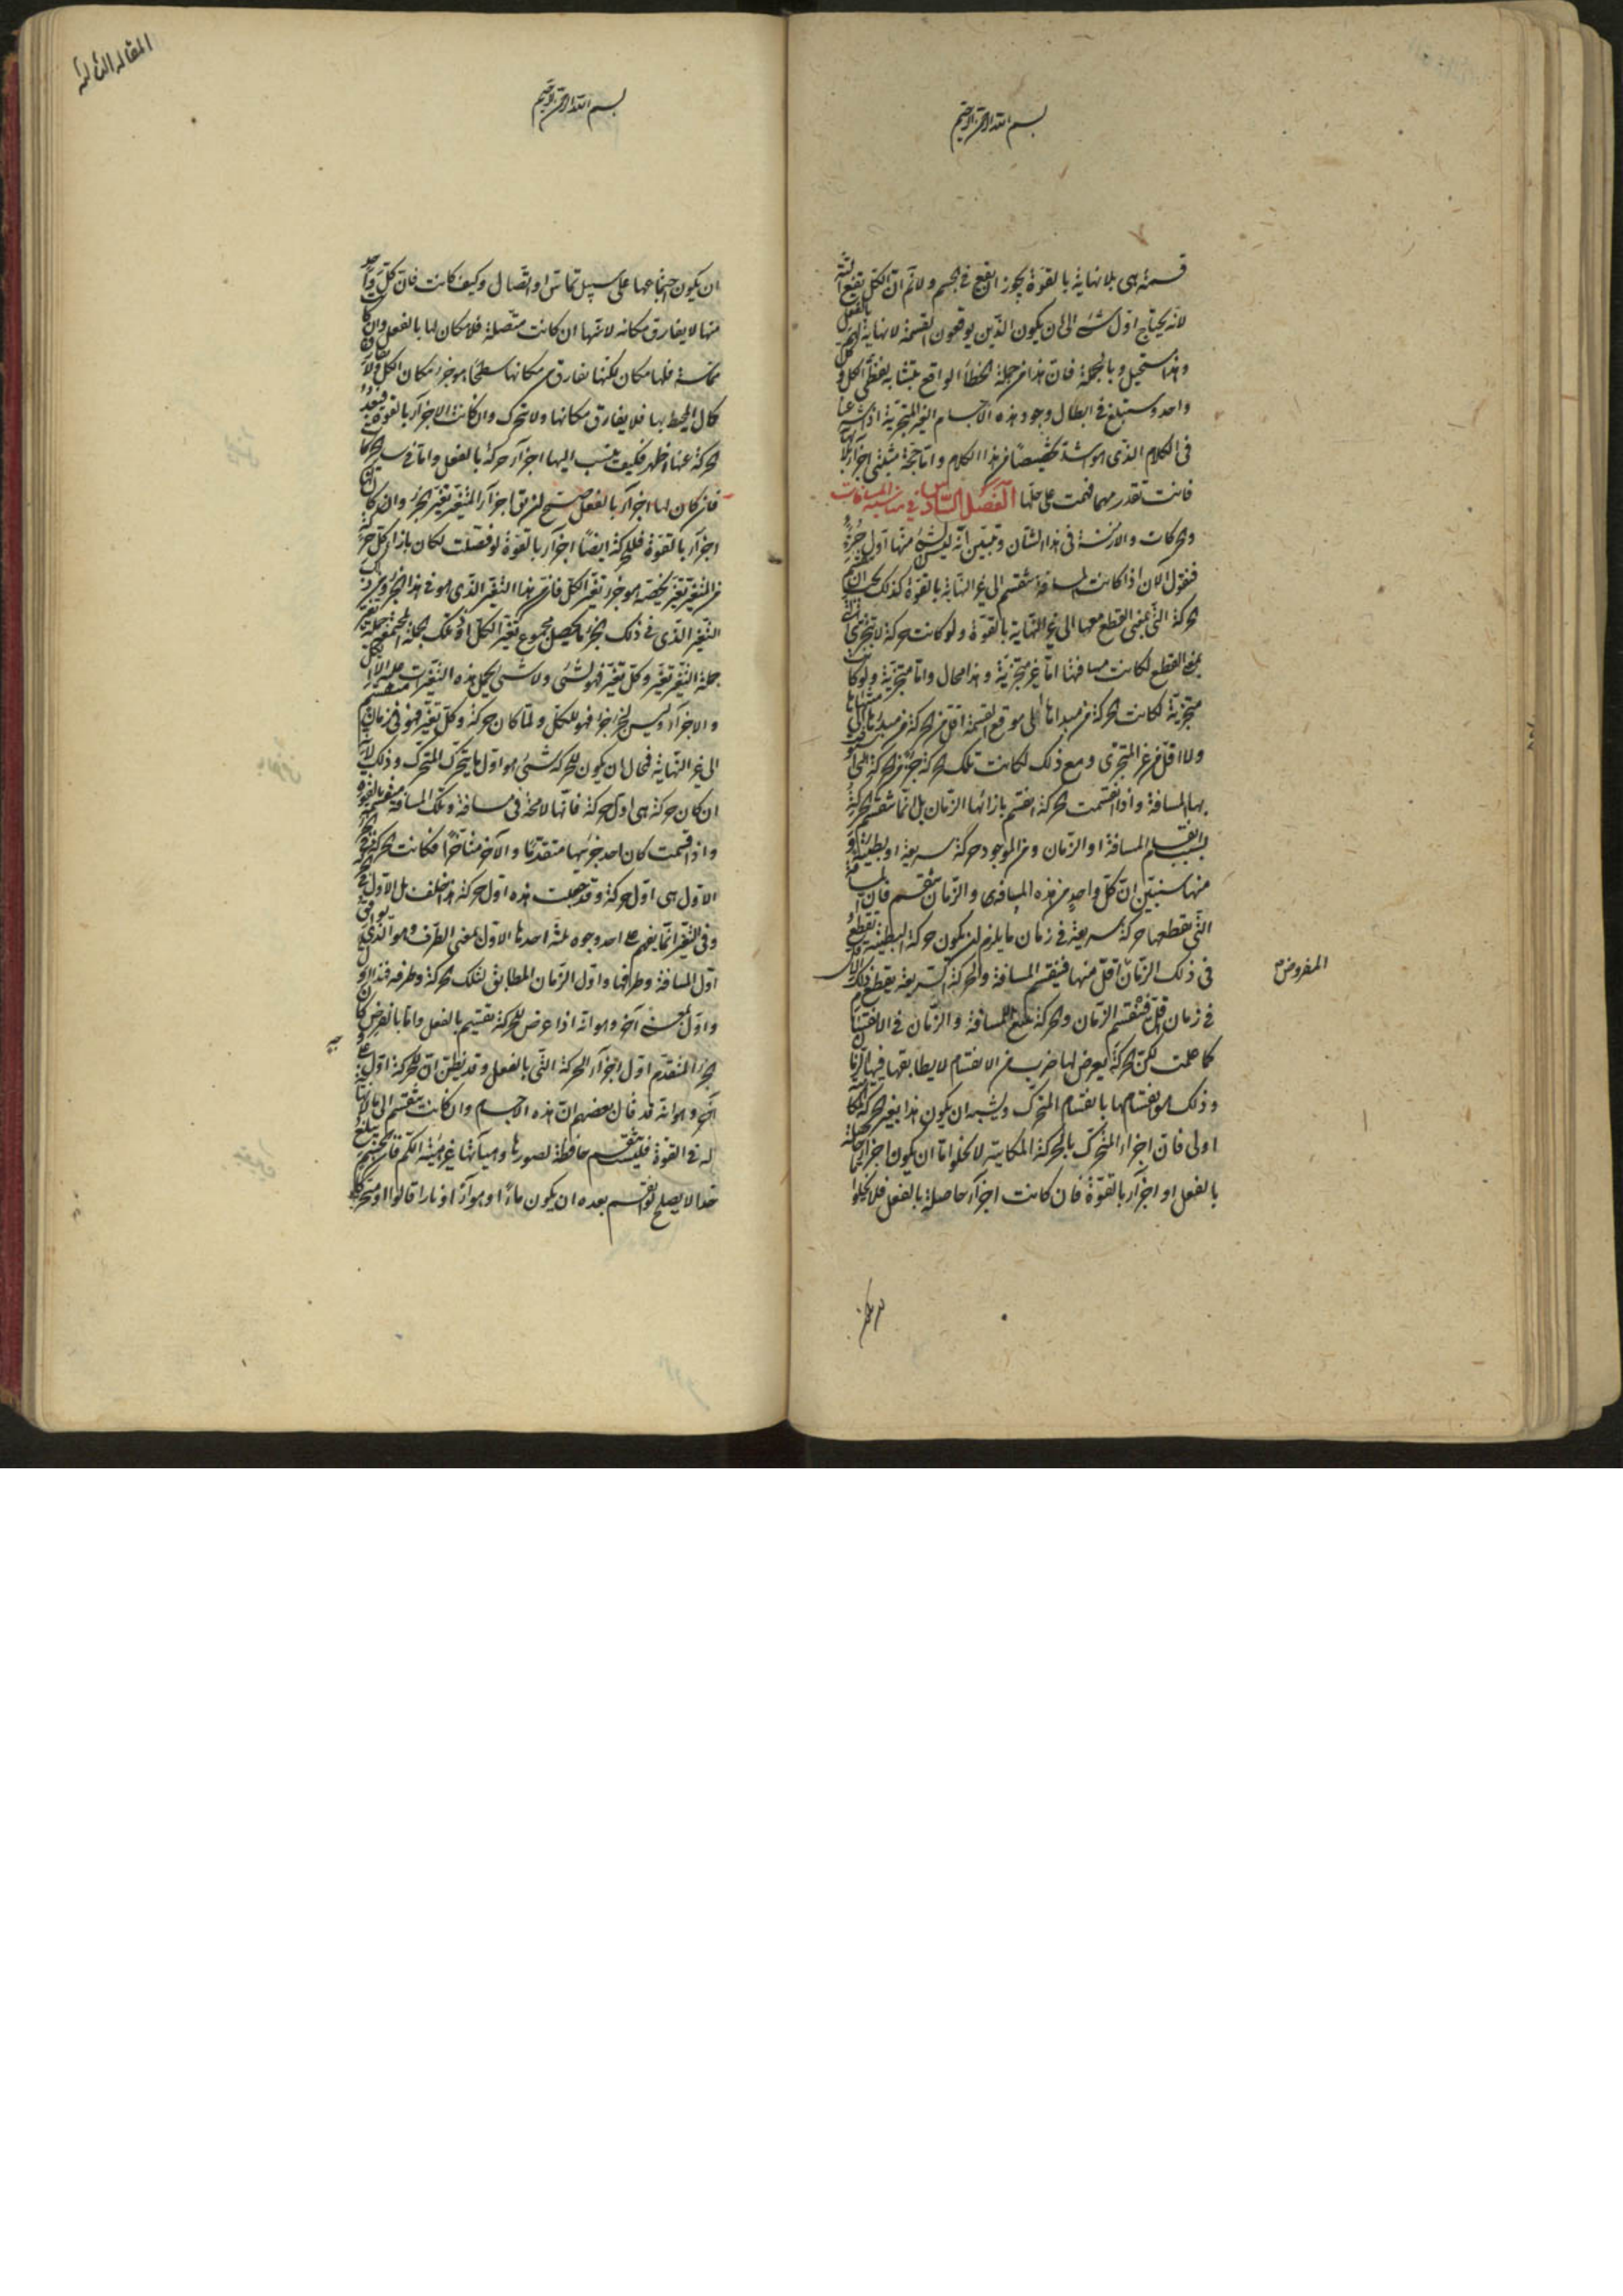 بسم الله الرحمن الرحيم
قسمة هى بلا نهاية بالقوة يجوز ان يقع فى الجسم ولا نم ان الكل يقع البتة
لانه يحتاج اول شئ الى ان يكون الذين يوقعون القسمة لا نهاية لهم بالفعل
وهذا مستحيل وبالجملة فان هذا من جملة الخطأ الواقع بتشابه لفظى الكل وكل
واحد وستبلغ فى ابطال وجود هذه الاجسام الغير المتجزية اذا شرعنا
فى الكلام الذى هو اشد تخصيصا من هذا الكلام واما حجة مثبتى اجزاء لا
فانت تقدر مهما فهمت على حلها الفصل السادس فى مناسبة المسافات
والحركات والازمنة فى هذا الشان وتبين انه ليس لشئ منها اول جزء
فنقول الآن اذا كانت المسافة تنقسم الى غير النهاية بالقوة كذلك يجب ان
الحركة التى بمعنى القطع معها الى غير النهاية بالقوة ولو كانت حركة لا تتجزى
بمعنى القطع لكانت مسافتها اما غير متجزية وهذا محال واما متجزية ولو كانت
متجزية لكانت الحركة من مبدائها الى موقع القسمة اقل من الحركة من مبدئها الى منتهاها
ولا اقل من غير المتجزى ومع ذلك لكانت تلك الحركة جزء من الحركة
بها المسافة واذا انقسمت الحركة انقسم بازائها الزمان بل انما تنقسم الحركة
بسبب انقسام المسافة او الزمان ومن الموجود حركة سريعة او بطيئة و
منها سنبين ان كل واحد من هذه المسافة والزمان تنقسم فان المسافة
التى يقطعها حركة سريعة فى زمان ما يلزم ان يكون حركة البطيئة تقطع
فى ذلك الزمان اقل منها فينقسم المسافة والحركة السريعة يقطع ذلك الاقل
المفروض
فى زمان اقل فينقسم الزمان والحركة تتبع المسافة والزمان فى الانقسام
كما علمت لكن الحركة يعرض لها ضرب من الانقسام لا يطابقها فيها الزمان
وذلك هو انقسامها بانقسام المتحرك ويشبه ان يكون هذا بغير الحركة المكانية
اولى فان اجزاء المتحرك بالحركة المكانية لا يخلوا اما ان يكون اجزاء حاصلة
بالفعل او اجزاء بالقوة فان كانت اجزاء حاصلة بالفعل فلا يخلوا
المقالة الثالثة
بسم الله الرحمن الرحيم
ان يكون اجتماعها على سبيل تماس او اتصال وكيف كانت فان كل واحد
منها لا يفارق مكانه لانها ان كانت متصلة فلا مكان لها بالفعل وان كانت
مماسة فلها مكان لكنها تفارق من مكانها سطحا هو جزء مكان الكل ولا تفارق
كمال المحيط بها فلا يفارق مكانها ولا تتحرك وان كانت الاجزاء بالقوة فبعد
الحركة عنها اظهر فكيف ينسب اليها اجزاء حركة بالفعل واما فى سائر الحركات
فان كان لها اجزاء بالفعل صح ان يق اجزاء المتغير تغير الجزء وان كان
اجزاء بالقوة فللحركة ايضا اجزاء بالقوة لو فصلت لكان بازاء كل جزء
من المتغير تغير يخصه هو جزء تغير الكل فان هذا التغير الذى هو فى هذا الجزء
التغير الذى فى ذلك الجزء ما يحصل مجموع تغير الكل او فى تلك الجملة المجتمعة جملة تغير
جملة التغير تغير وكل تغير فهو لشئ ولا شئ يحمل هذه التغيرات
والاجزاء وليس لجزء جزء فهو للكل ولما كان حركة وكل تغير فهو فى زمان منقسم
الى غير النهاية فمحال ان يكون للحركة شئ هو اول ما يتحرك المتحرك وذلك لانه
ان كان حركة هى اول حركة فانها لا محة فى مسافة وتلك المسافة منقسمة بالقوة
واذا قسمت كان احد جزئيها متقدما والآخر متأخرا فكانت الحركة فى الجزء
الاول هى اول حركة وقد جعلت هذه اول حركة هذا خلف بل الاول فى
وفى التغير انما يفهم على احد وجوه ثلثة احدها الاول بمعنى الطرف وهو الذى يوافق
اول المسافة وطرفها واول الزمان المطابق لتلك الحركة وطرفه فهذا اول
واول بمعنى آخر وهو انه اذا عرض للحركة تقسيم بالفعل واما بالفرض كان
الجزء المتقدم اول اجزاء الحركة التى بالفعل وقد يظن ان للحركة اول على
آخر وهو انه قد قال بعضهم ان هذه الاجسام وان كانت تنقسم الى ما لا نهاية
له فى القوة فليست تنقسم حافظة لصورها وهيآتها غير هيئة الكم فان الجسم يبلغ
حدا لا يصلح لو انقسم بعده ان يكون ماءً او هواءً او نارا قالوا او متحركا